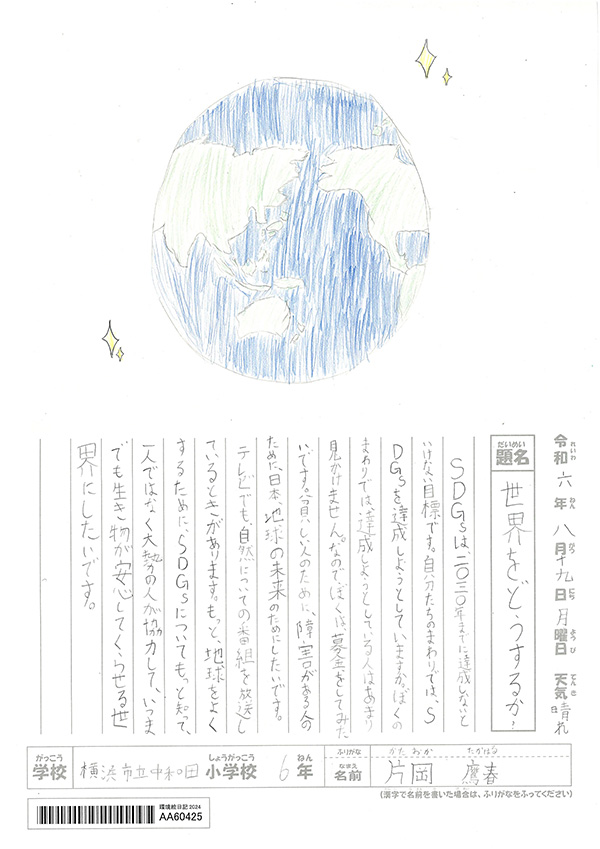 令和六年八月十九日月曜日 天気晴れ
れいわ ねん がつ にち ようび てんき
だいめい
題名 世界をどうするか?
SDGsは、二〇三〇年までに達成しないと
いけない目標です。自分たちのまわりでは、S
DGsを達成しようとしていますが、ぼくの
まわりでは達成しようとしている人はあまり
見かけません。なのでぼくは、募金をしてみた
いです。貧しい人のために、障害がある人の
ために、日本、地球の未来のためにしたいです。
テレビでも、自然についての番組を放送し
ているときがあります。もっと、地球をよく
するために、SDGsについてもっと知って、
一人ではなく大勢の人が協力して、いつま
でも生き物が安心してくらせる世
界にしたいです。
がっこう しょうがっこう ねん ふりがな かたおか たかはる
学校 横浜市立中和田小学校 6年 なまえ 名前 片岡 鷹春
(漢字で名前を書いた場合は、ふりがなをふってください)
環境絵日記2024
AA60425